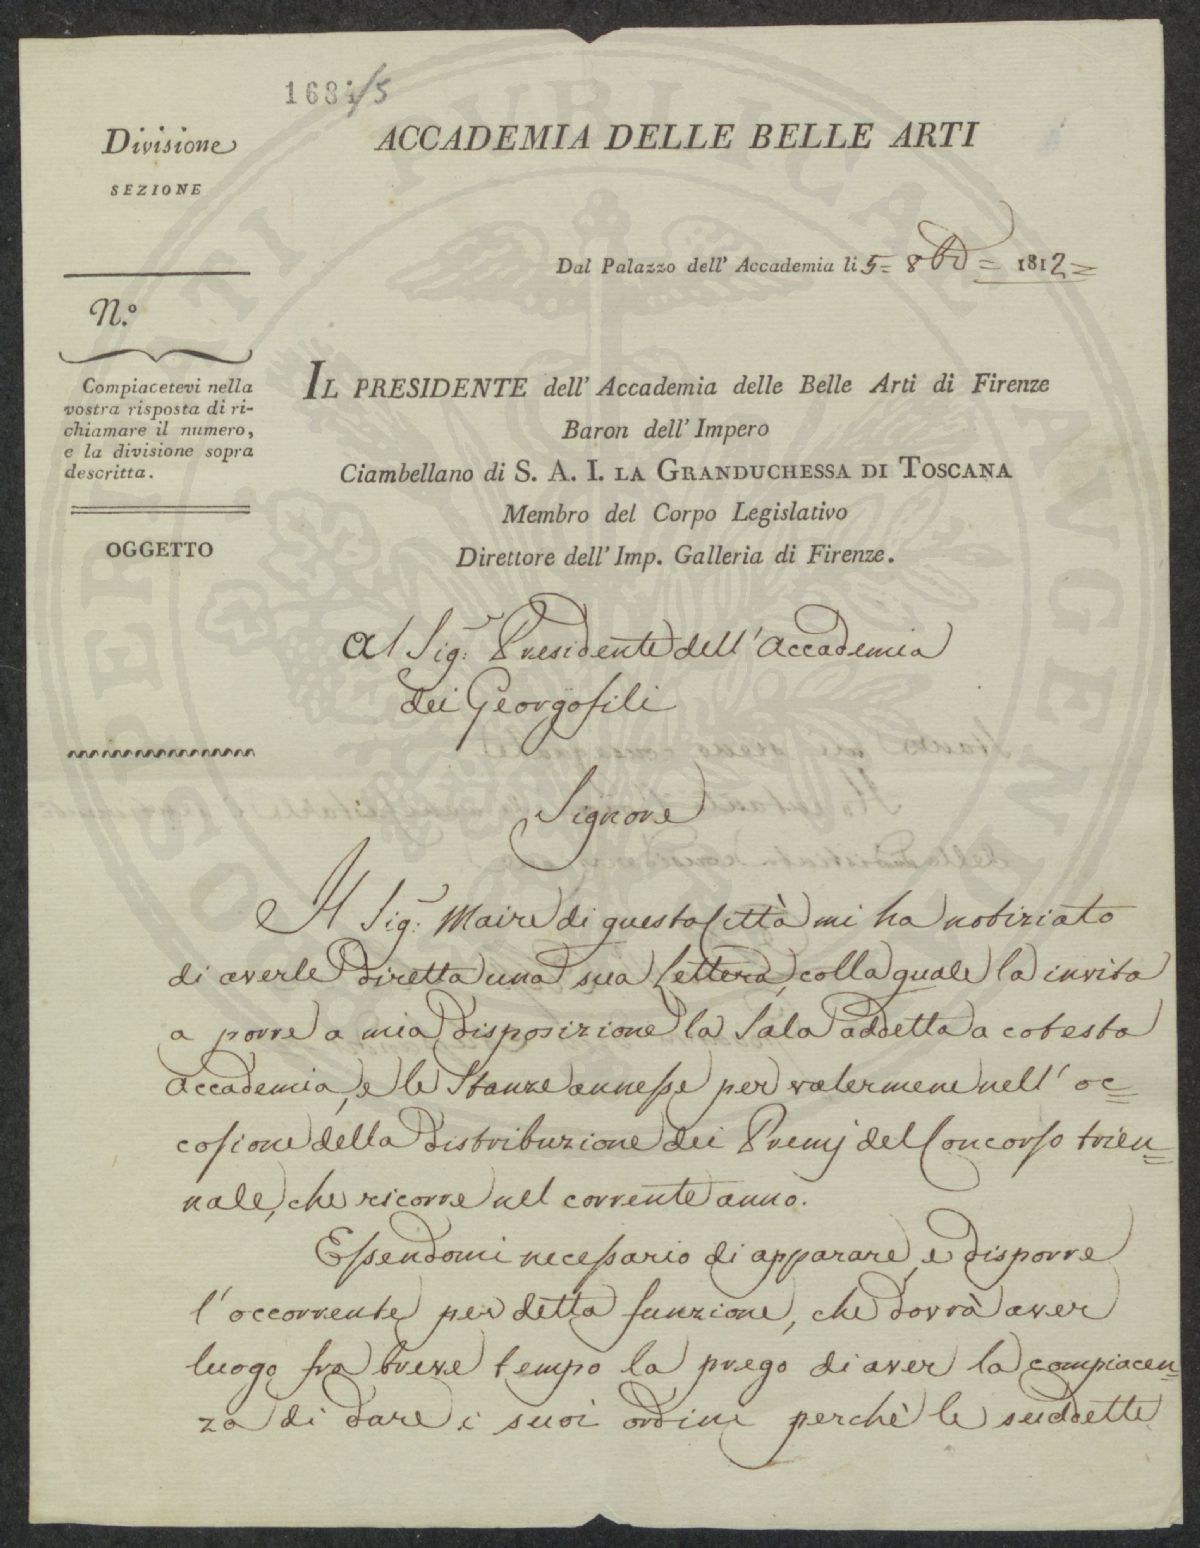 1634/5
Divisione
SEZIONE
ACCADEMIA DELLE BELLE ARTI
Dal Palazzo dell' Accademia li 5= 8bre = 1812=
N.º
Compiacetevi nella
vostra risposta di ri-
chiamare il numero,
e la divisione sopra
descritta.
OGGETTO
IL PRESIDENTE dell' Accademia delle Belle Arti di Firenze
Baron dell' Impero
Ciambellano di S. A. I. LA GRANDUCHESSA DI TOSCANA
Membro del Corpo Legislativo
Direttore dell' Imp. Galleria di Firenze.
Al Sig.r Presidente dell'Accademia
dei Georgofili
Signore
Il Sig.r Maire di questa Città mi ha notiziato
di averle diretta una sua Lettera, colla quale la invita
a porre a mia disposizione la Sala addetta a cotesta
Accademia, e le Stanze annesse per valermene nell' oc=
casione della Distribuzione dei Premj del Concorso trien=
nale, che ricorre nel corrente anno.
Essendomi necessario di apparare, e disporre
l'occorrente per detta funzione, che dovrà aver
luogo fra breve tempo la prego di aver la compiacen=
za di dare i suoi ordini perchè le suddette